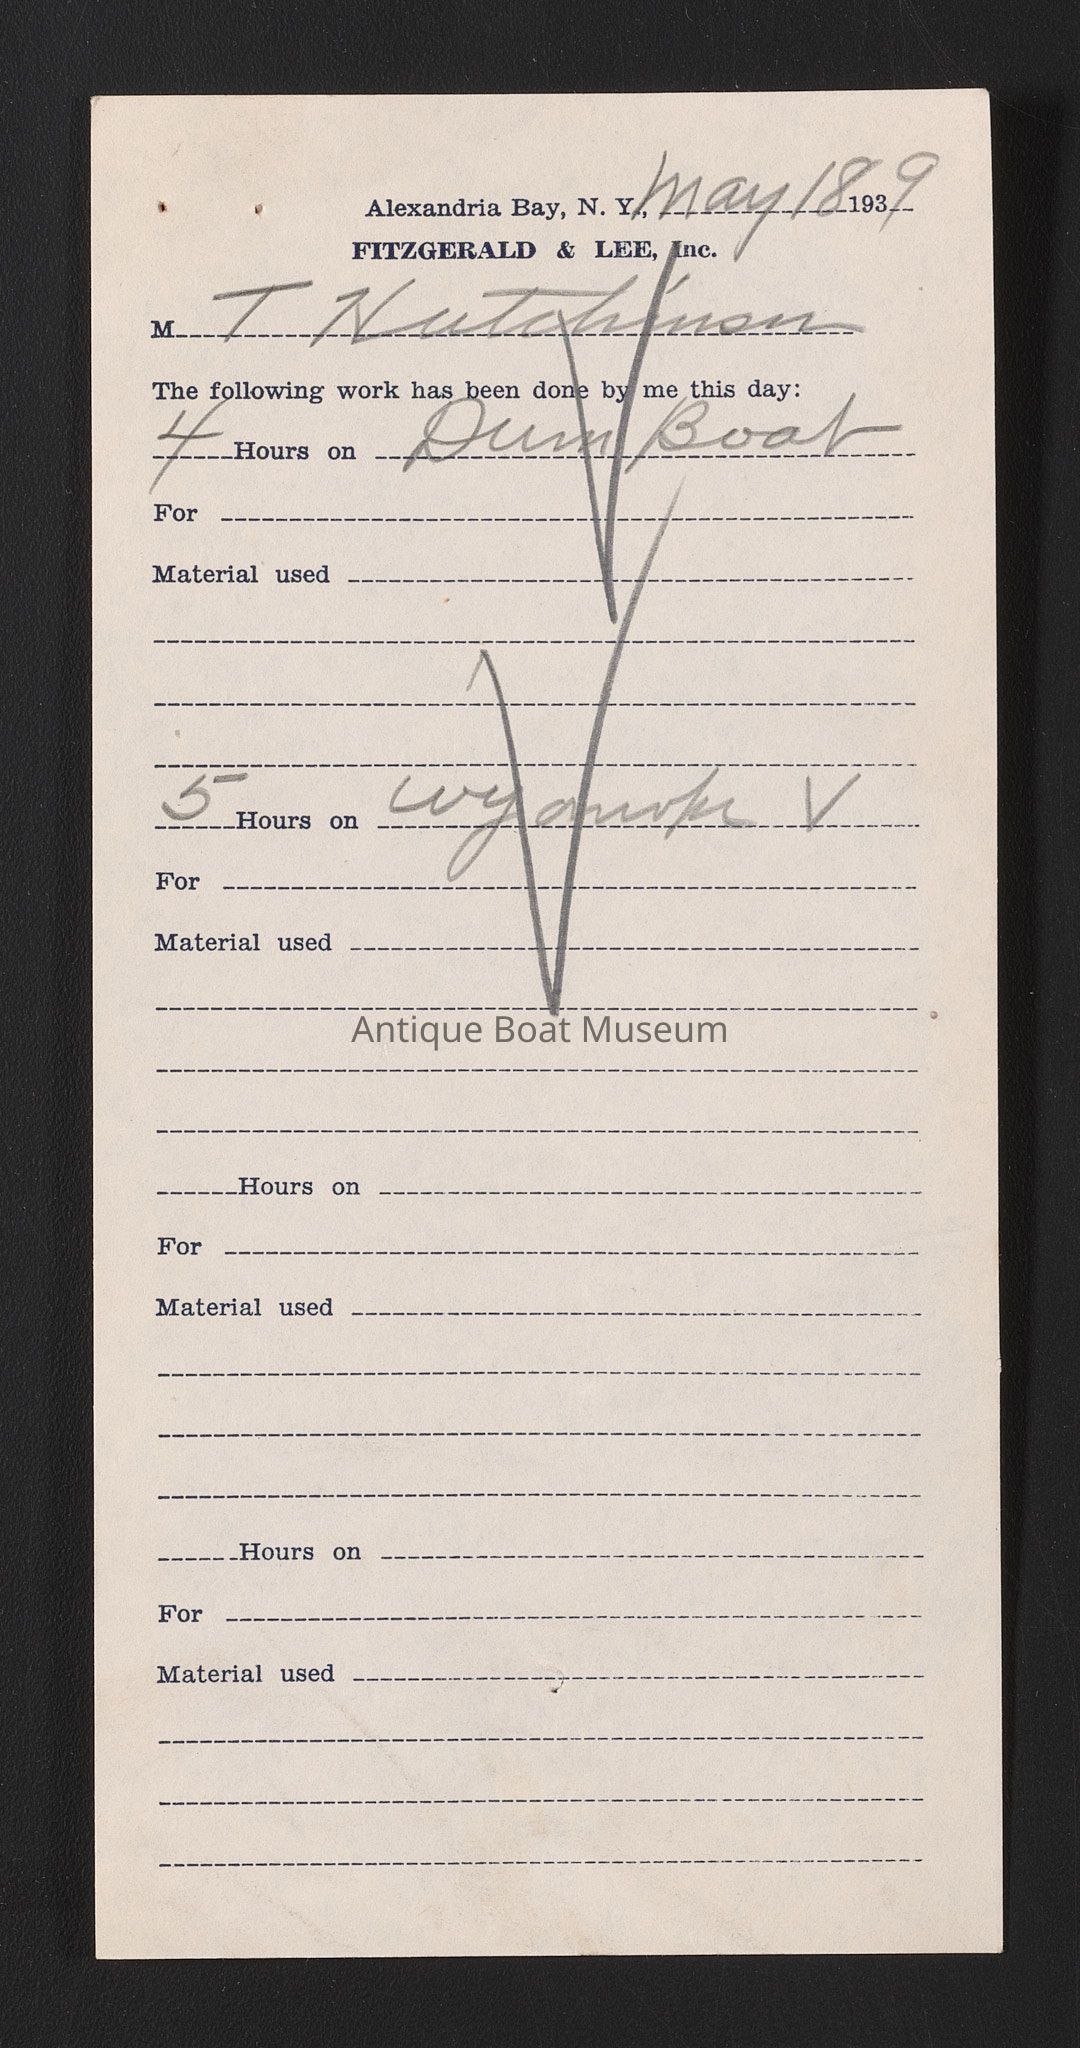 Alexandria Bay, N. Y., May 18 1939
FITZGERALD & LEE, Inc.
M T Hutchinson
The following work has been done by me this day:
4 Hours on Dum Boat
For
Material used
5 Hours on V
For
Material used
Antique Boat Museum
Hours on
For
Material used
Hours on
For
Material used